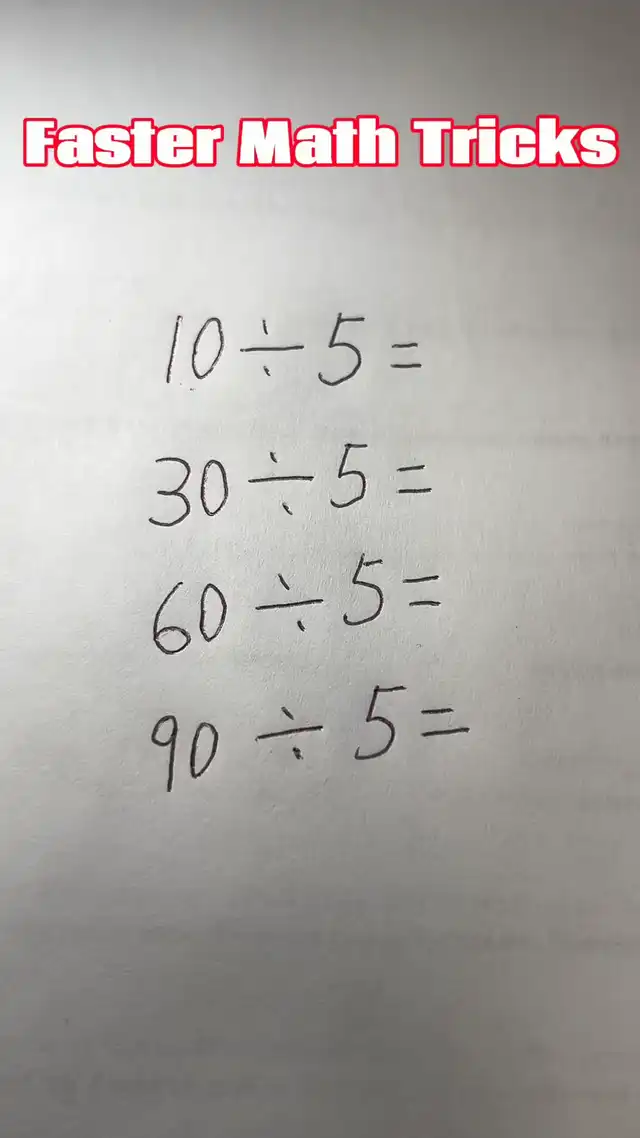 Faster Math Tricks
10 ÷ 5 =
30 ÷ 5 =
60 ÷ 5 =
90 ÷ 5 =